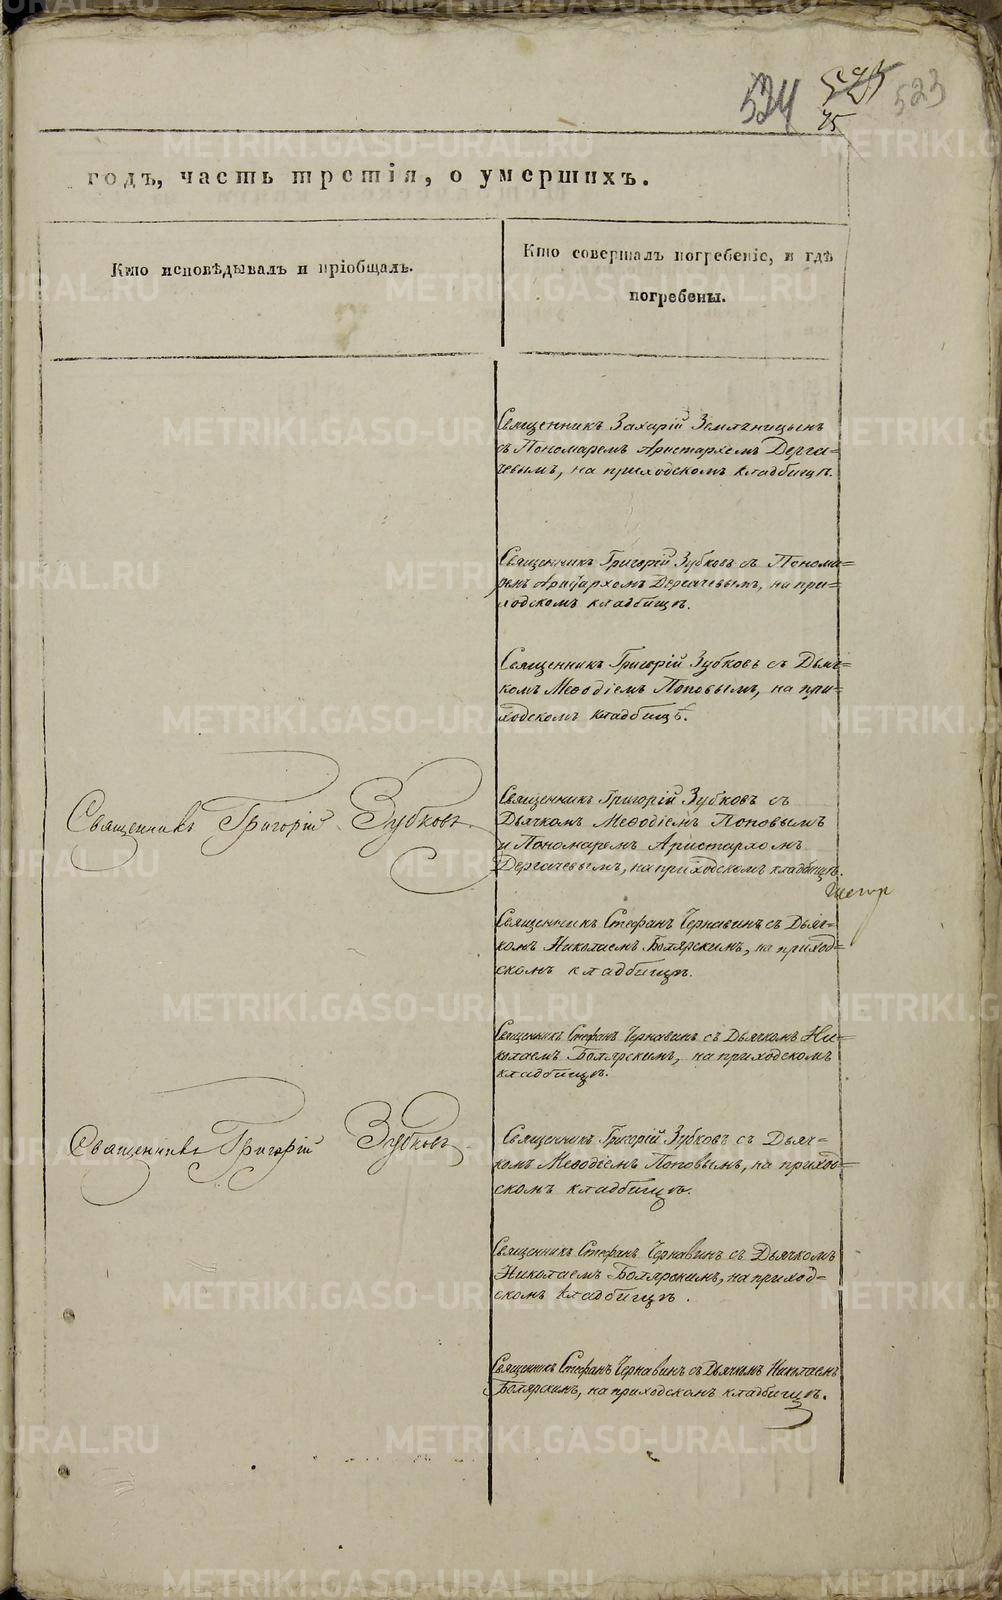 524 523
75
годъ, часть третія, о умершихъ.
Кто исповѣдывалъ и пріобщалъ.
Кто совершалъ погребеніе, и гдѣ
погребены.
Священникъ Захарій Земляницынъ
съ Пономаремъ Аристархомъ Дерга=
чевымъ, на приходскомъ кладбищѣ.
Священникъ Григорій Зубковъ съ Понома=
ремъ Аристархомъ Дергачевымъ, на при=
ходскомъ кладбищѣ.
Священникъ Григорій Зубковъ съ Дьяч=
комъ Меѳодіемъ Поповымъ, на при=
ходскомъ кладбищѣ.
Священникъ Григорій Зубковъ
Священникъ Григорій Зубковъ съ
Дьячкомъ Меѳодіемъ Поповымъ
и Пономаремъ Аристархомъ
Дергачевымъ, на приходскомъ кладбищѣ.
Священникъ Стефанъ Чернавинъ съ Дьяч=
комъ Николаемъ Боярскимъ, на приход=
скомъ кладбищѣ.
Священникъ Стефанъ Чернавинъ съ Дьячкомъ Ни=
колаемъ Боярскимъ, на приходскомъ
кладбищѣ.
Священникъ Григорій Зубковъ
Священникъ Григорій Зубковъ съ Дьяч=
комъ Меѳодіемъ Поповымъ, на приход=
скомъ кладбищѣ.
Священникъ Стефанъ Чернавинъ съ Дьячкомъ
Николаемъ Боярскимъ, на приход=
скомъ кладбищѣ.
Священникъ Стефанъ Чернавинъ съ Дьячкомъ Николаемъ
Боярскимъ, на приходскомъ кладбищѣ.
METRIKI.GASO-URAL.RU